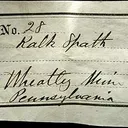 No. 28
Kalk Spath
Wheatley Mine
Pennsylvania